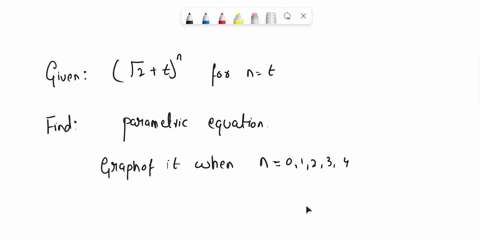 Given: (√2 + t)^n for n = t
Find: parametric equation.
Graph of it when n = 0, 1, 2, 3, 4